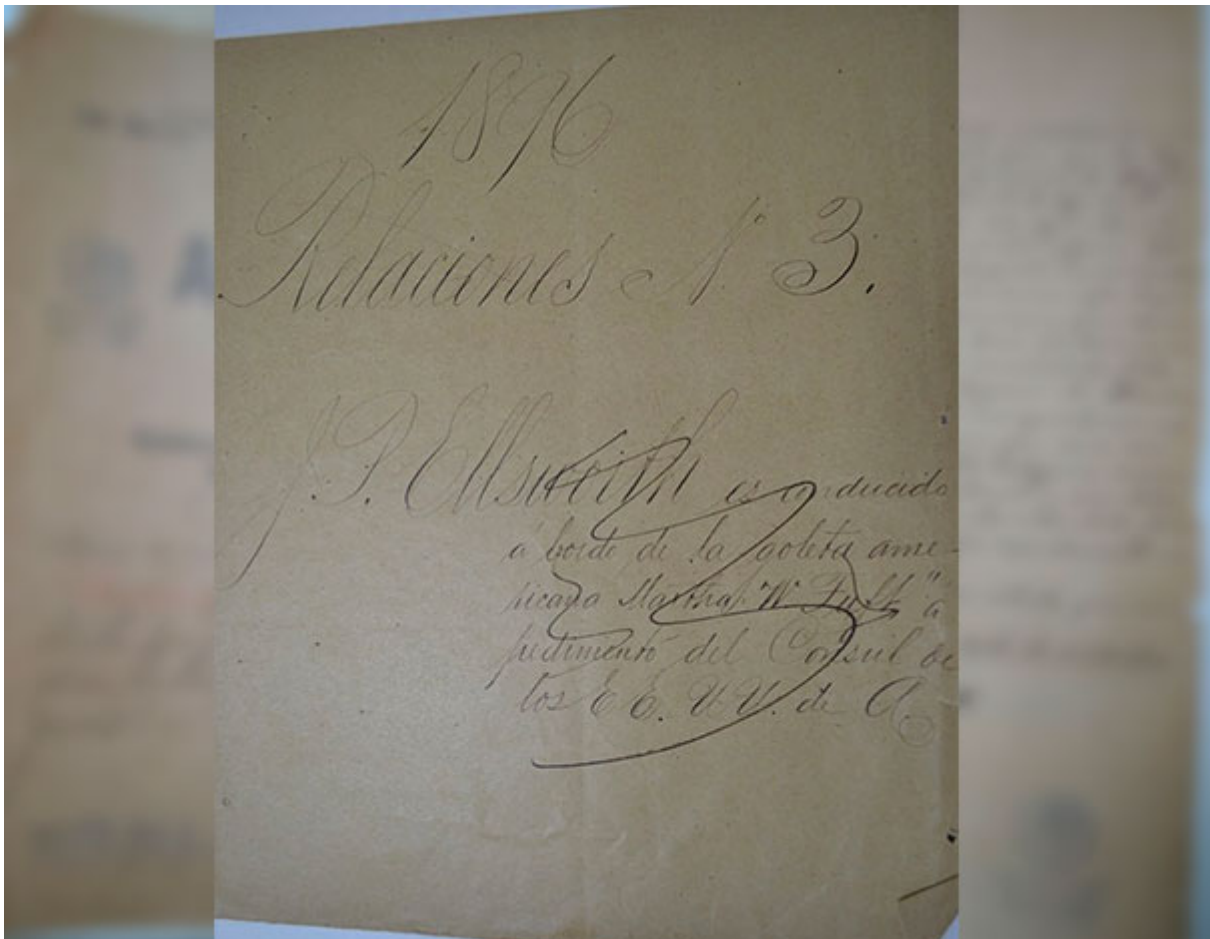 1896
Relaciones N.° 3.
J. P. Ellsworth es conducido
á bordo de la goleta ame-
ricana Martha W. Tuft" á
pedimento del Consul de
los E E. U U. de A.